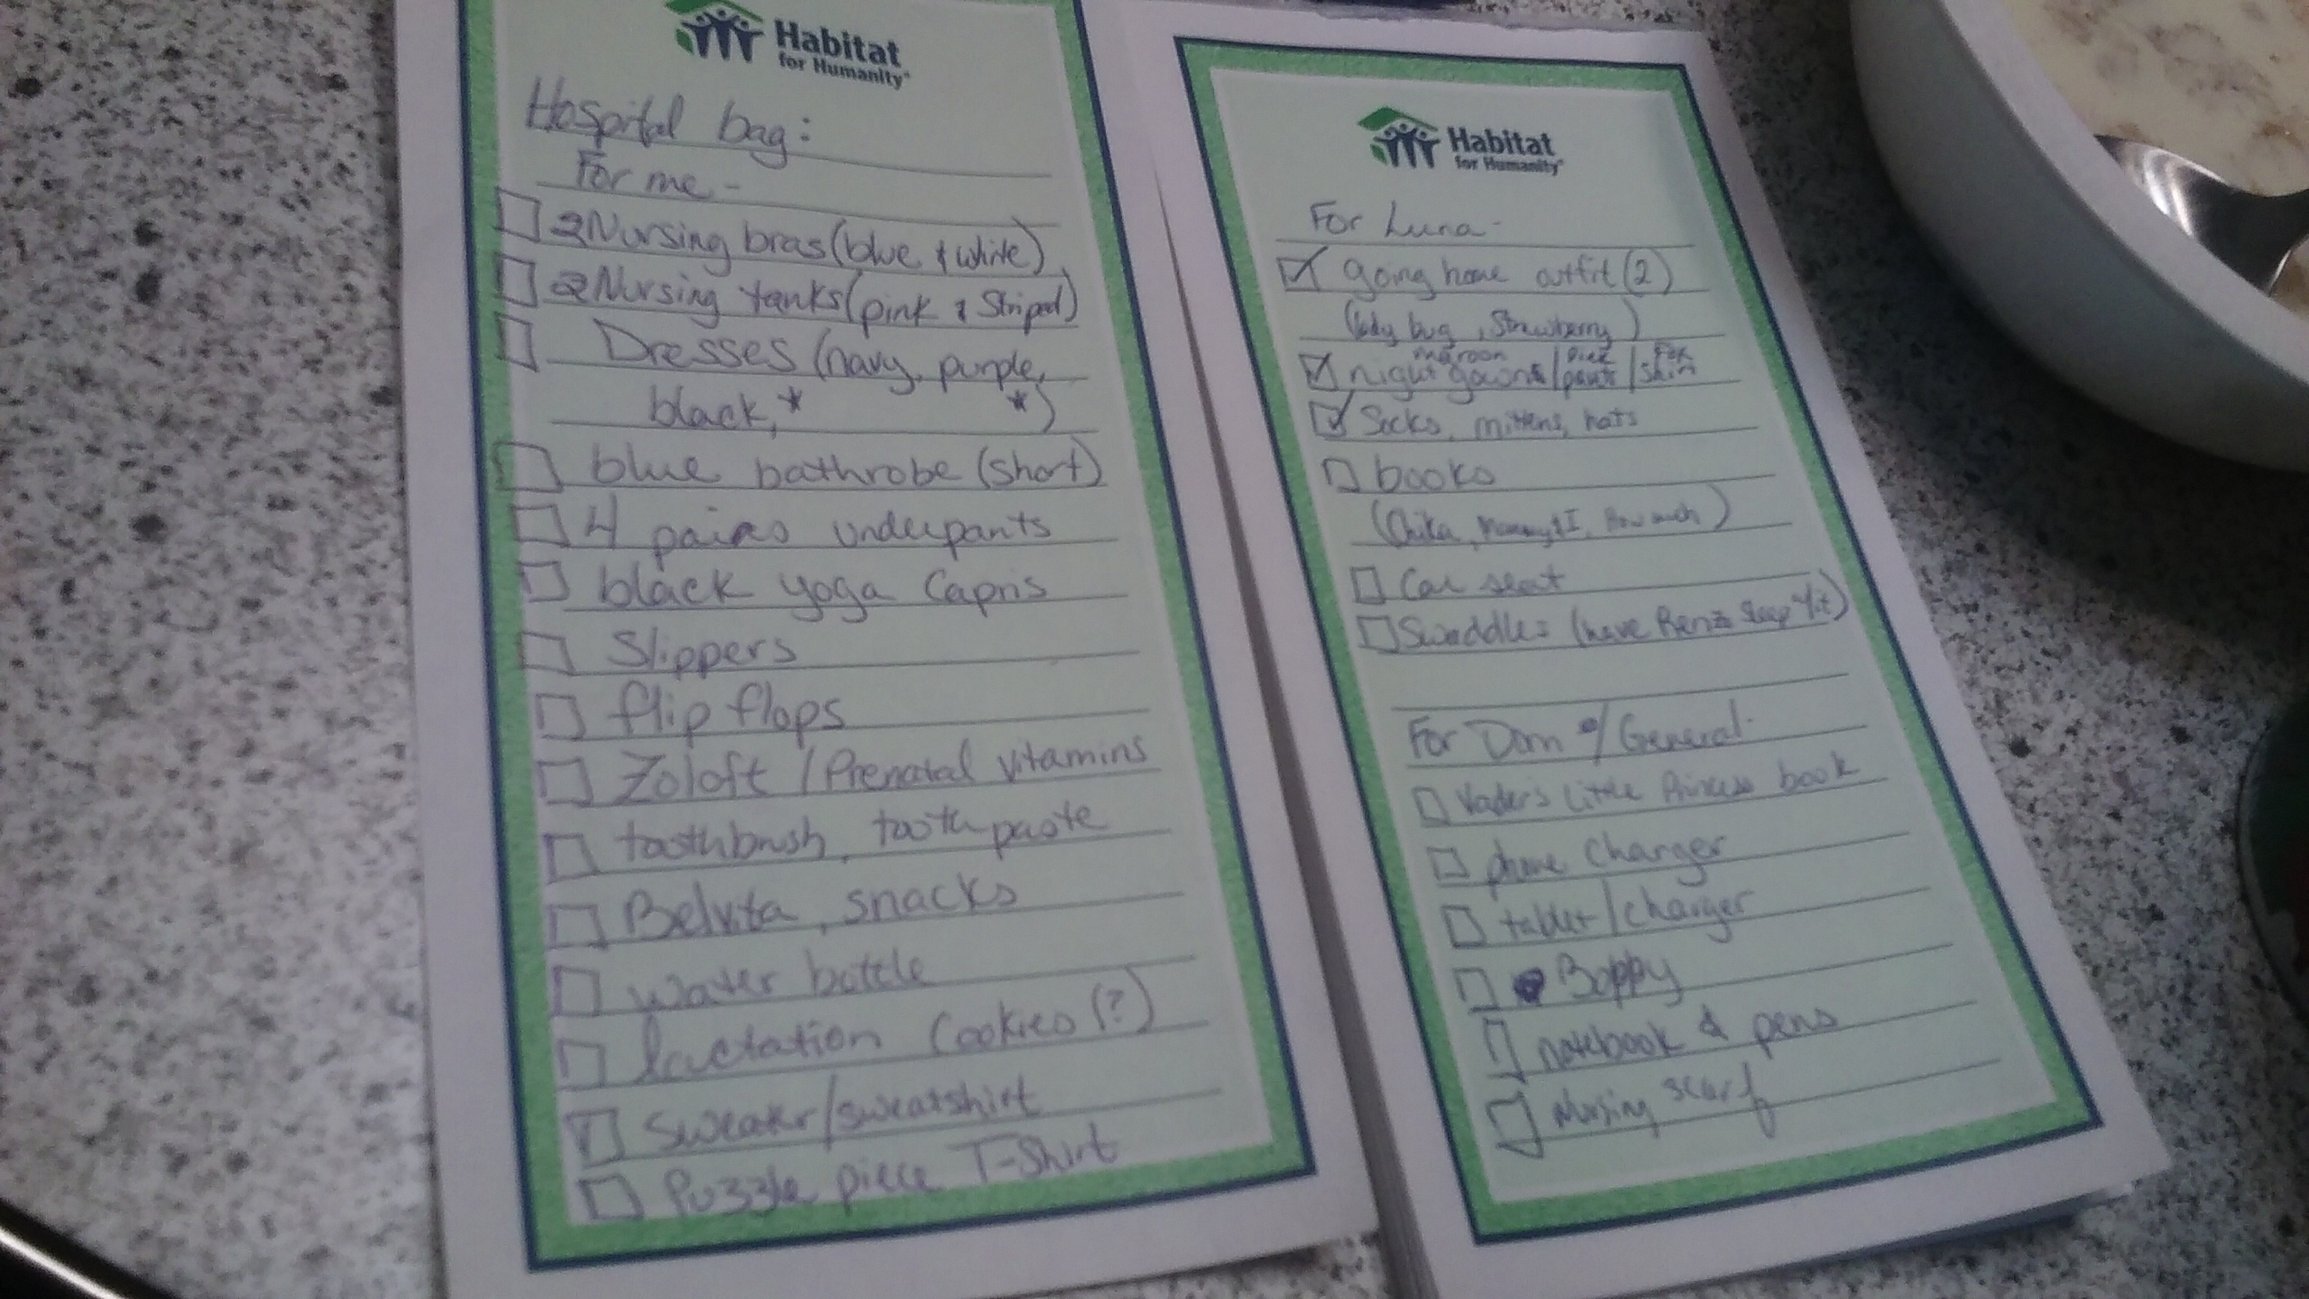 Habitat
for Humanity®
Hospital bag:
For me -
2 Nursing bras (blue & white)
2 Nursing tanks (pink & Striped)
Dresses (navy, purple,
black, * *)
blue bathrobe (short)
4 pairs underpants
black yoga Capris
Slippers
flip flops
Zoloft / Prenatal vitamins
toothbrush, toothpaste
Belvita, snacks
water bottle
lactation Cookies (?)
sweater/sweatshirt
Puzzle piece T-Shirt
Habitat
for Humanity®
For Luna -
going home outfit (2)
(lady bug, Strawberry)
maroon
night gowns / pants /
Socks, mittens, hats
books
(Chika, Mommy & I, How much)
Car seat
Swaddles (have
For Dom / General
Vader's Little Princess book
phone Charger
tablet / charger
Boppy
notebook & pens
Nursing scarf